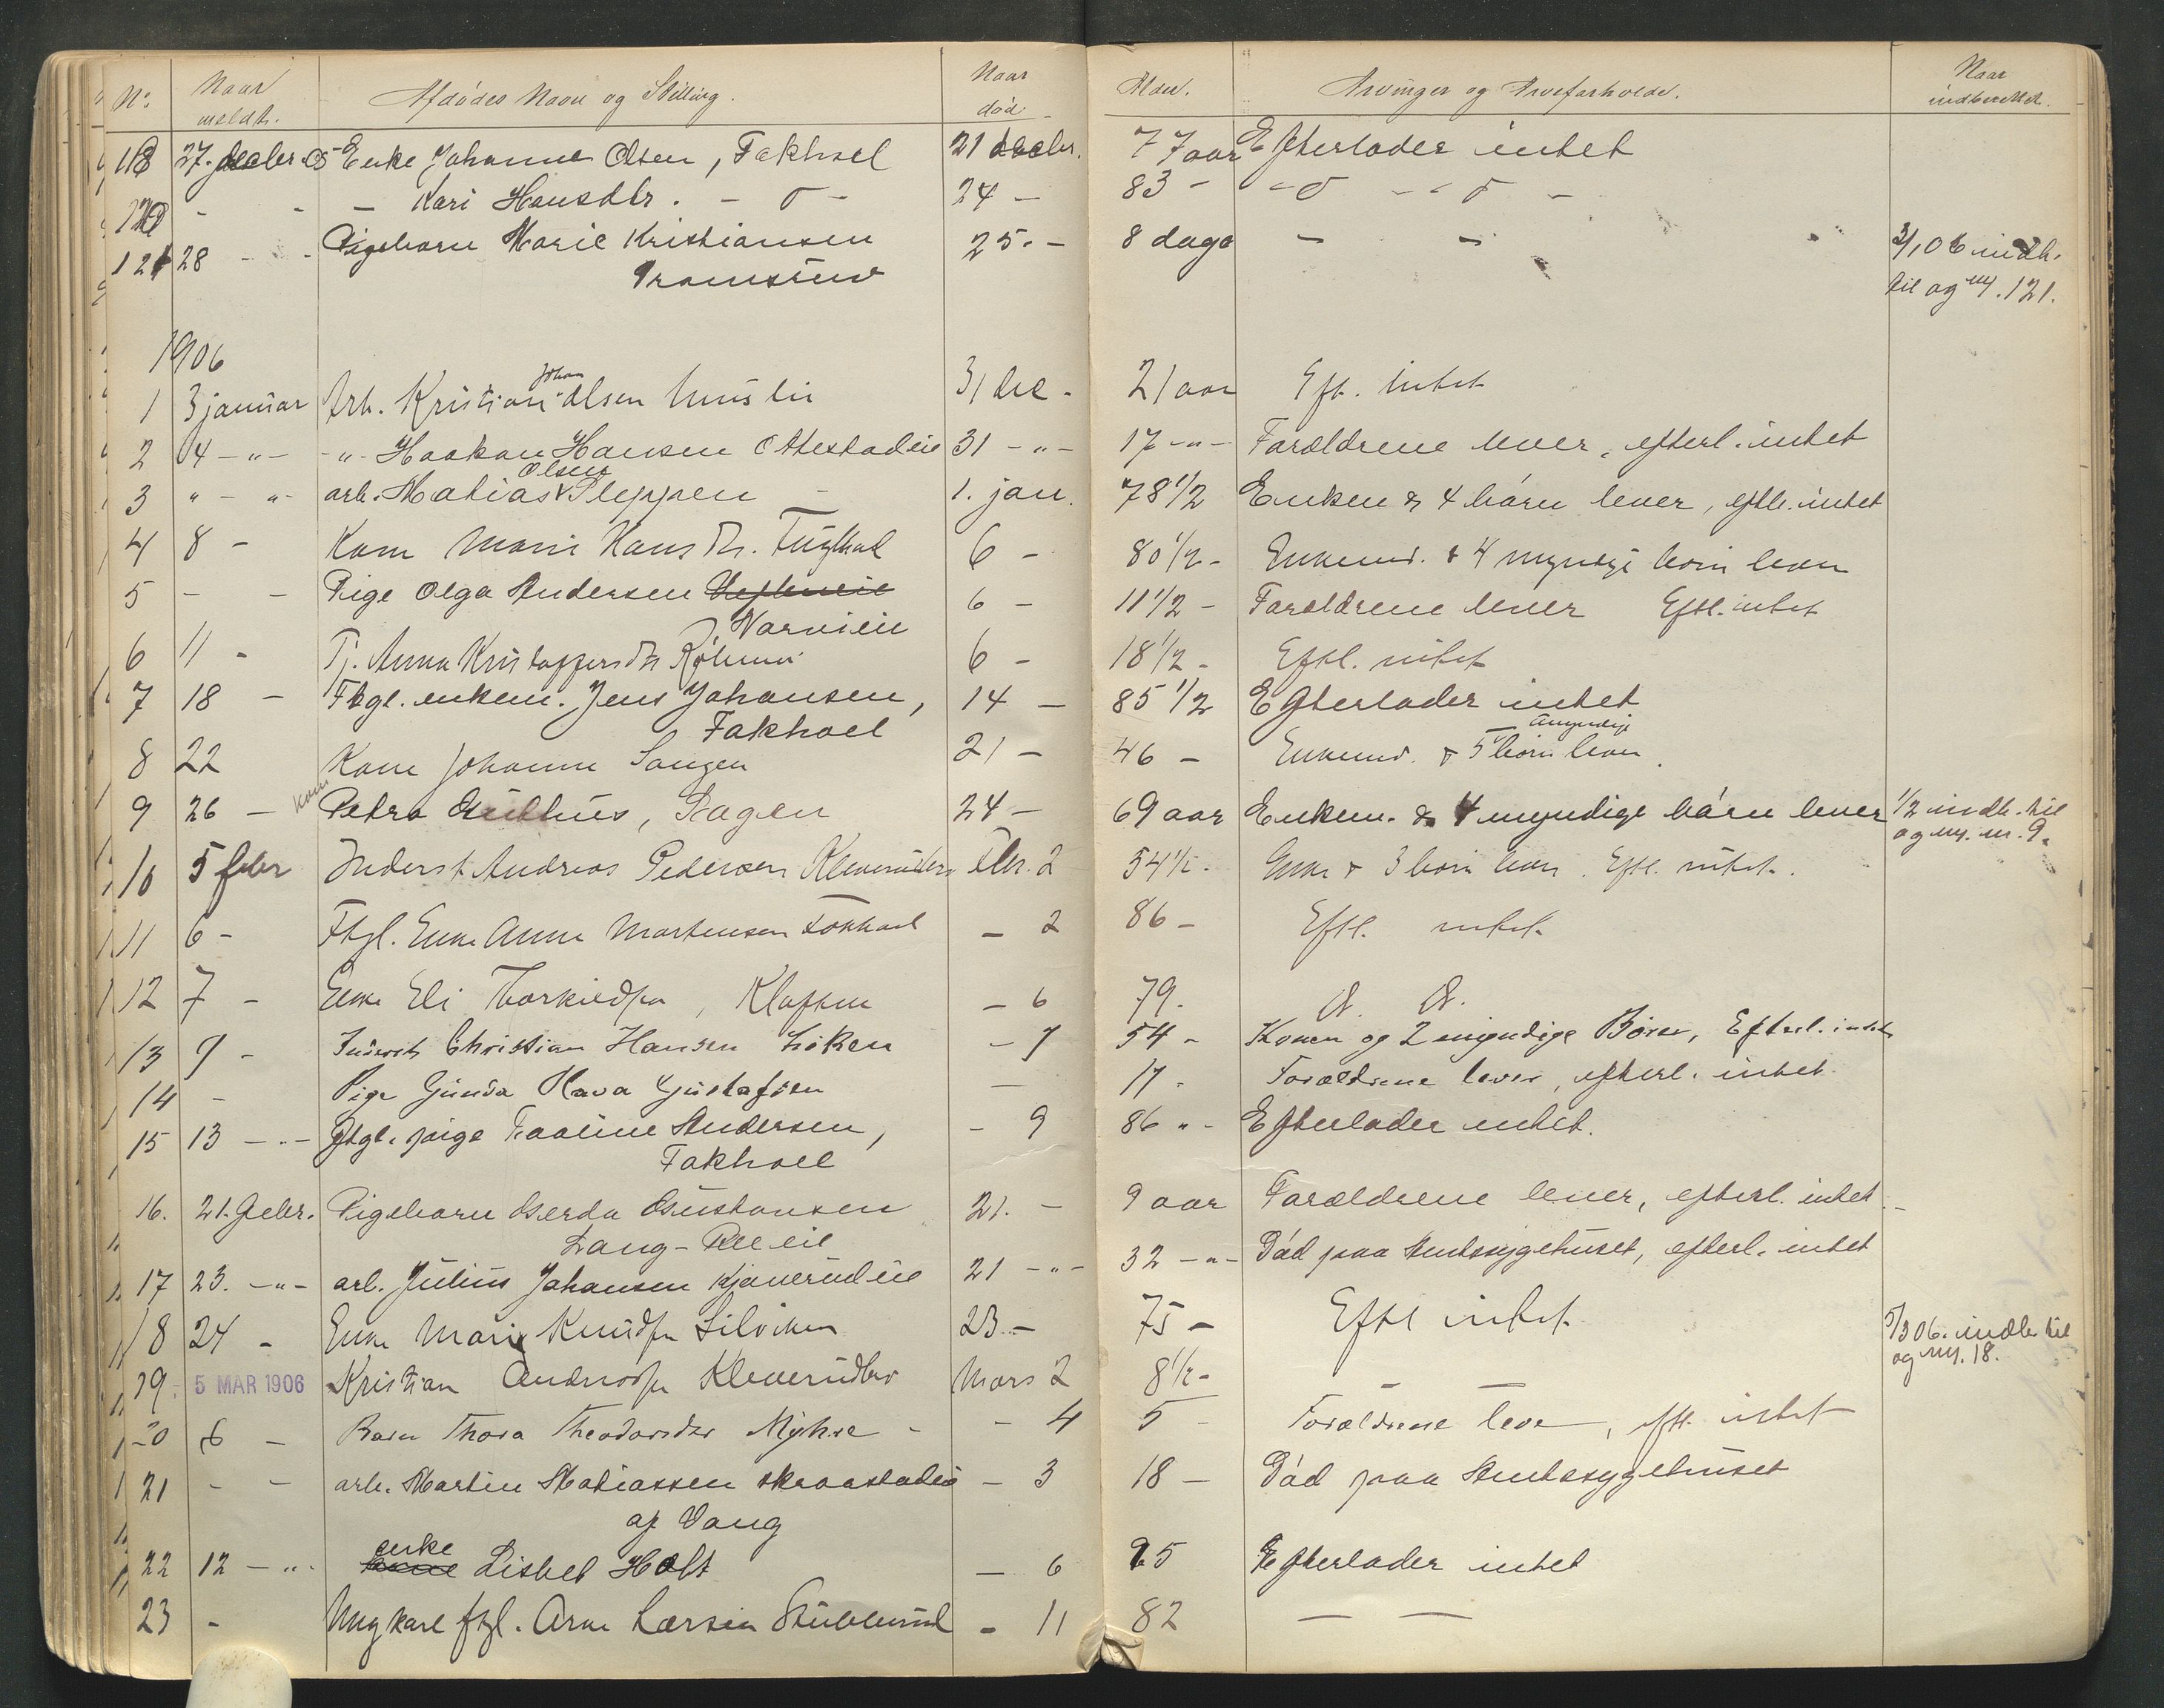 No. Naar meldt. Afdødes Navn og Stilling. Naar død Alder. Arvinger og Arveforholde. Naar indberettet.
27. decbr. 05 Enke Johanne Olsen, Fakhoel 21 decbr. 77 aar Efterlader intet
120 - - - Kari Hansdtr. - o - 24 - 83 - - o - - o -
121 28 - - Pigebarn Marie Kristiansen 25. - 8 dage - - 3/1 06 indb.
til og m. 121.
1906
1 3 januar Arb. Kristian Johan Olsen 31 de - 21 aar Eft. intet
2 4 - " - - " - Haakon Hansen Ottestadeie 31 - " - 17 - " - Forældrene lever, efterl. intet
3 " - " - arb. Matias Olsen Sleppen - 1. jan. 78 1/2 Enken & 4 børn lever, eftl. intet
4 8 - Kone Marie Hansdtr. 6 - 80 1/2 - Enkemd. & 4 myndige børn lever
5 - - Pige Olga Andersen 6 - 11 1/2 - Forældrene lever Eftl. intet
Narvieie
6 11 - Tj. Anna Kristoffersdtr 6 - 18 1/2 - Eftl. intet
7 18 - Ftgl. enkem. Jens Johansen, 14 - 85 1/2 Efterlader intet
Fakhoel
8 22 Kone Johanne Sangen 21 - 46 - Enkemd. & 5 umyndige børn lever.
9 26 - Kone Petra Hagen 24 - 69 aar Enkem. & 4 myndige børn lever 1/2 indb. til
og m. nr. 9.
10 5 febr Inderst Andreas Pedersen Febr. 2 54 1/2 - Enke & 3 børn lever. Eftl. intet.
11 6 - Ftgl. Enke Anne Mortensen Fokhoel - 2 86 - Eftl. intet.
12 7 - Enke Eli, Kloften - 6 79. d. d.
13 9 - Inderst Christian Hansen Løken - 7 54 - Konen og 2 myndige Børn, Efterl. intet
14 - Pige Gunda Gustafsen - 17 - Forældrene lever, efterl. intet
15 13 - " - Ftgl. pige Pauline Andersen, - 9 86 " - Efterlader intet.
Fakhoel
16. 21. Febr. Pigebarn Gerda Gustansen 21. - 9 aar Forældrene lever, efterl. intet -
17 23. - " - arb. Julius Johansen Kjønerudeie 21 - " - 32 - " - Død paa Amtssygehuset, efterl. intet
18 24 - Enke Mari 23 - 75 - Eftl intet 5/3 06. indb. til
og m. 18.
19 - 5 MAR 1906 Kristian Mars 2 8 1/2 -
20 6 - Barn Thora Theodorsdtr Myhre - - 4 5 - Forældrene leve, eftl. intet
21 - - arb. Martin Matiassen Skraastadeie - 3 18 - Død paa Amtssygehuset
af Vang
22 12 - " - enke Lisbet Holt - 6 Efterlader intet
23 - Ungkarl ftgl. Arne Larsen - 11 82 - -